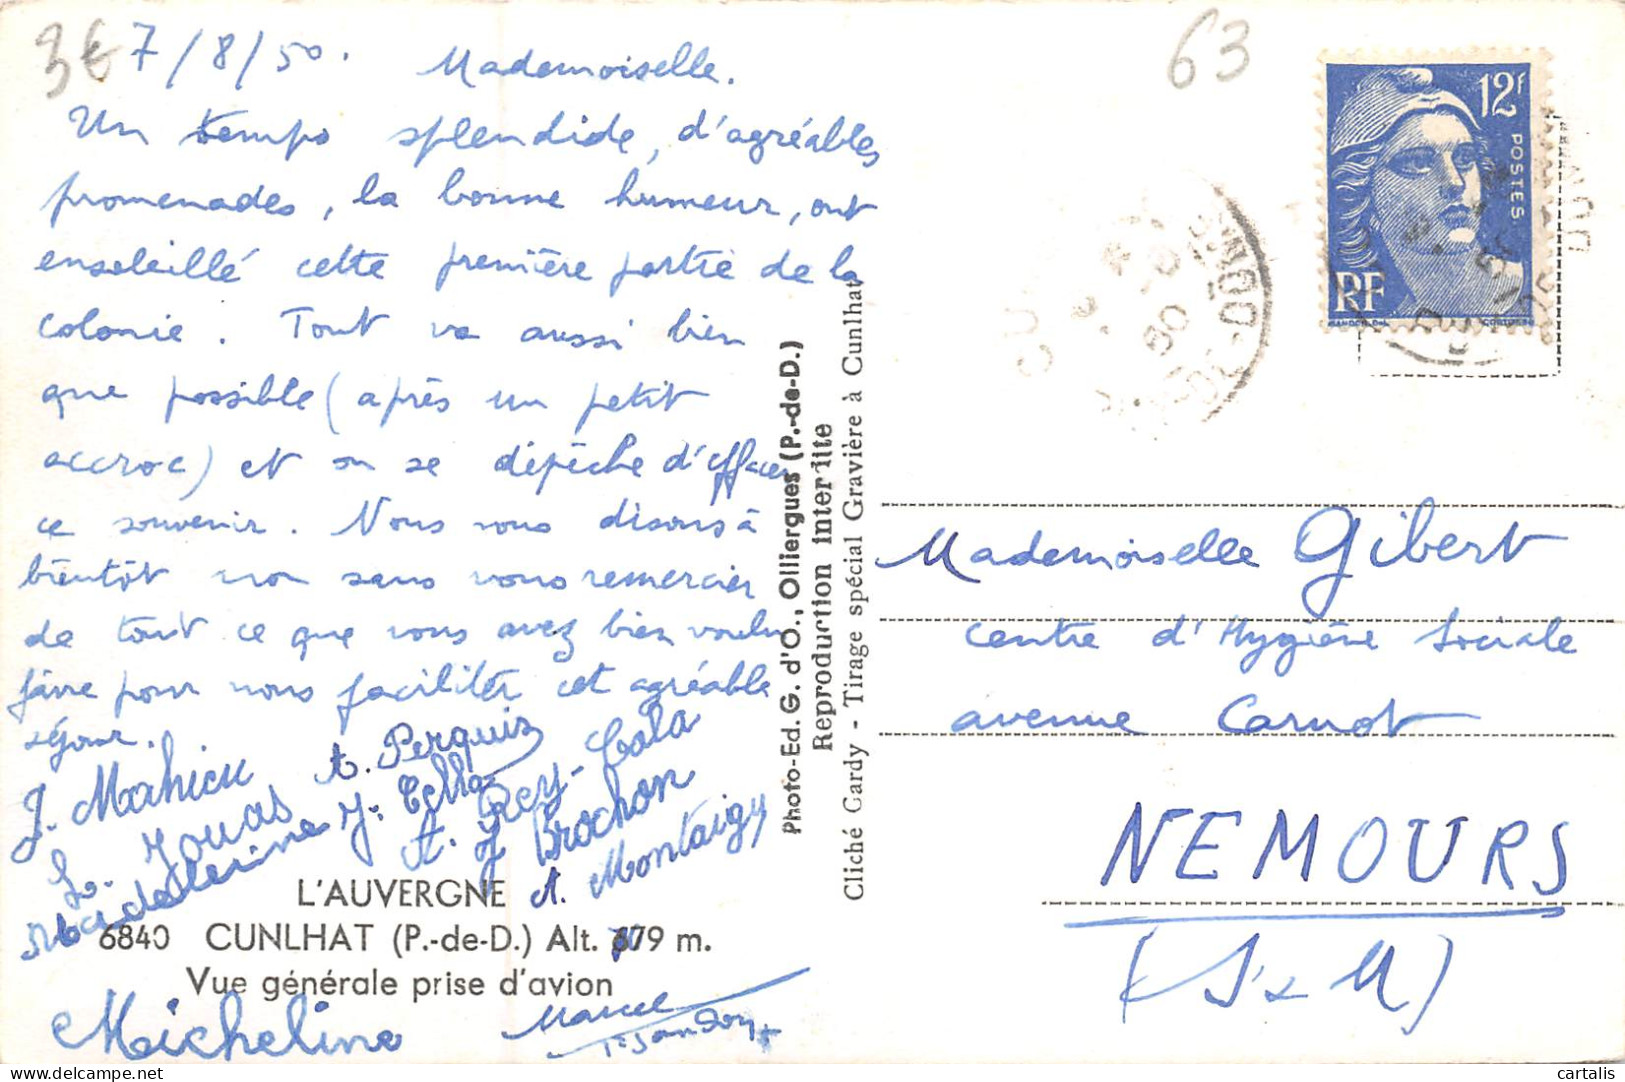 3€ 7/8/50. Mademoiselle.
Un temps splendide, d'agréables
promenades, la bonne humeur, ont
ensoleillé cette première partie de la
colonie. Tout va aussi bien
que possible (après un petit
accroc) et on se dépêche d'effacer
ce souvenir. Nous vous disons à
bientôt non sans vous remercier
de tout ce que vous avez bien voulu
faire pour nous faciliter cet agréable
séjour.
J. Mahieu
A. Perquiz
L. Jouas
Madeleine
A. Rey-Cala
J Brochon
A. Montaigu
Micheline
Marcel
L'AUVERGNE
6840 CUNLHAT (P.-de-D.) Alt. 679 m.
Vue générale prise d'avion
Photo-Ed. G. d'O., Olliergues (P.-de-D.)
Reproduction interdite
Cliché Cardy - Tirage spécial Gravière à Cunlhat
63
12F
POSTES
RF
Mademoiselle Gibert
Centre d'Hygiène Sociale
avenue Carnot
NEMOURS
(S & M)
cartalis